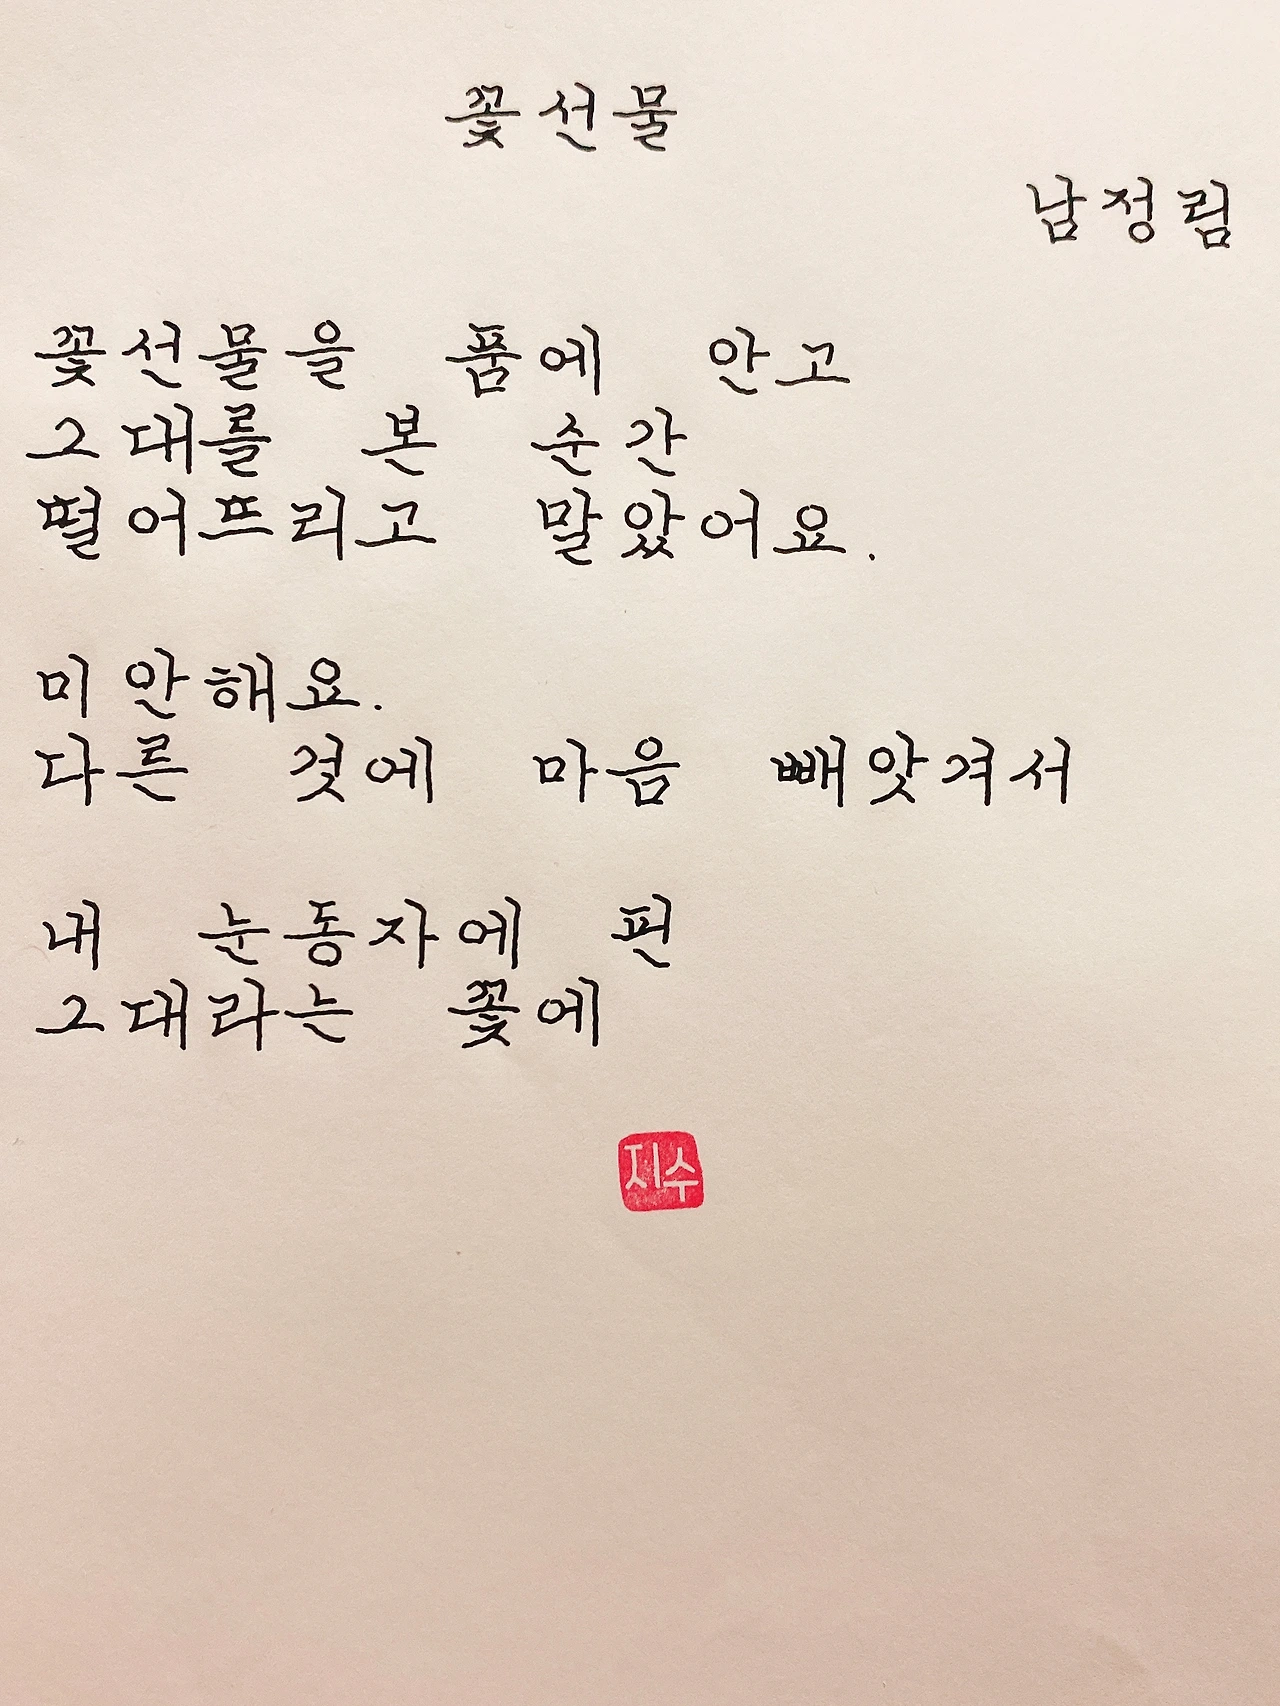 꽃선물
남정림
꽃선물을 품에 안고
그대를 본 순간
떨어뜨리고 말았어요.
미안해요.
다른 것에 마음 빼앗겨서
내 눈동자에 핀
그대라는 꽃에
지수